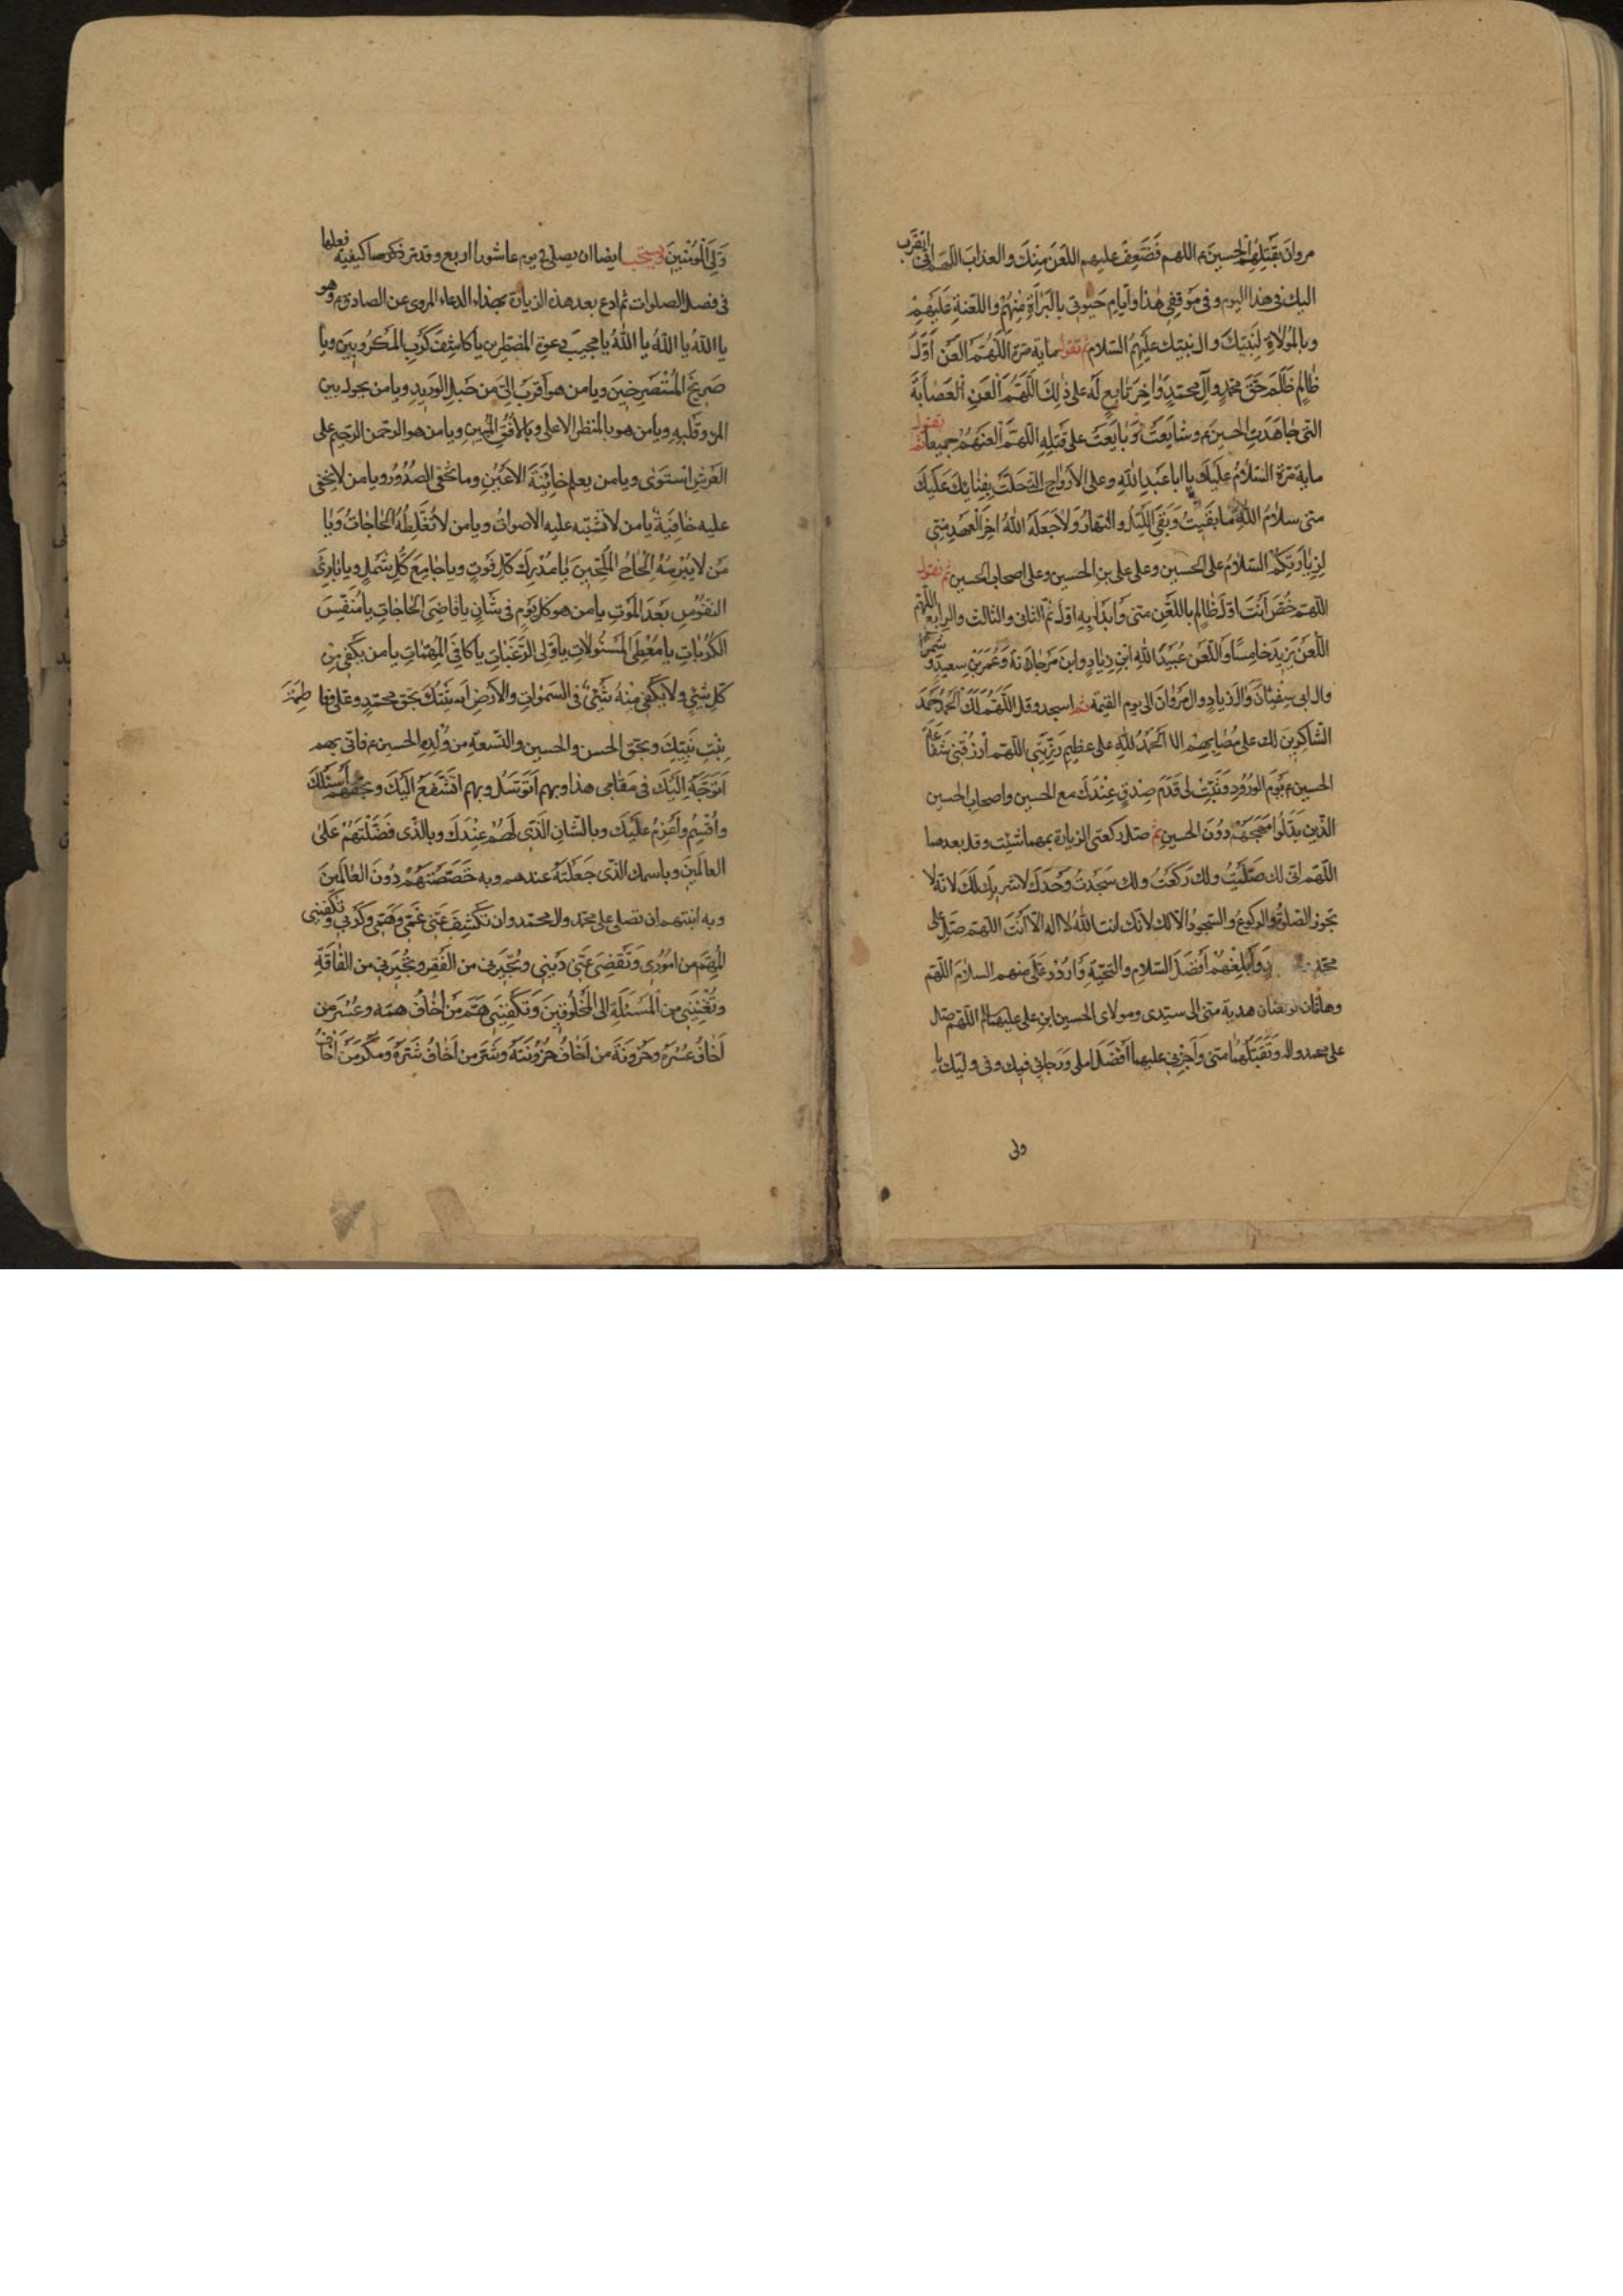 مروان بقتلهم الحسين ع اللهم فضعف عليهم اللعن منك والعذاب اللهم انى اتقرب
اليك فى هذا اليوم وفى موقفى هذا وايام حيوتى بالبراءة منهم واللعنة عليهم
وبالموالاة لنبيك وال نبيك عليهم السلام ثم تقول مأية مرة اللهم العن اول
ظالم ظلم حق محمد وآل محمد واخر تابع له على ذلك اللهم العن العصابة
التى جاهدت الحسين ع وشايعت وبايعت على قتله اللهم العنهم جميعا ثم تقول
مأية مرة السلام عليك يا ابا عبد الله وعلى الارواح التى حلت بفنائك عليك
منى سلام الله ما بقيت وبقى الليل والنهار ولا جعله الله اخر العهد منى
لزيارتكم السلام على الحسين وعلى على بن الحسين وعلى اصحاب الحسين ثم تقول
اللهم خص انت اول ظالم باللعن منى وابدأ به اولا ثم الثانى والثالث والرابع اللهم
العن يزيد خامسا والعن عبيد الله ابن زياد وابن مرجانة وعمر بن سعد وشمرا
وال ابى سفيان وال زياد وال مروان الى يوم القيمة ثم اسجد وقل اللهم لك الحمد حمد
الشاكرين لك على مصابهم الا الحمد لله على عظيم رزيتى اللهم ارزقنى شفاعة
الحسين ع يوم الورود وثبت لى قدم صدق عندك مع الحسين واصحاب الحسين
الذين بذلوا مهجهم دون الحسين ثم صل ركعتى الزيارة بمهما شئت وقل بعدهما
اللهم انى لك صليت ولك ركعت ولك سجدت وحدك لا شريك لك لانه لا
تجوز الصلوة والركوع والسجود الا لك لانك انت الله لا اله الا انت اللهم صل على
محمد وابلغهم افضل السلام والتحية واردد على منهم السلام اللهم
وهاتان الركعتان هدية منى الى سيدى ومولاى الحسين ابن على عليهما السلم اللهم صل
على محمد واله وتقبلهما منى واجزنى عليهما افضل املى ورجائى فيك وفى وليك يا
ولى
ولى المؤمنين ويستحب ايضا ان يصلى فى يوم عاشورا اربع وقد مر ذكرها كيفية فعلها
فى فصل الصلوات ثم ادع بعد هذه الزيارة بهذا الدعاء المروى عن الصادق ع وهو
يا الله يا الله يا الله يا مجيب دعوة المضطرين يا كاشف كرب المكروبين ويا
صريخ المستصرخين ويا من هو اقرب الى من حبل الوريد ويا من يحول بين
المرء وقلبه ويا من هو بالمنظر الاعلى وبالافق المبين ويا من هو الرحمن الرحيم على
العرش استوى ويا من يعلم خائنة الاعين وما تخفى الصدور ويا من لا يخفى
عليه خافية يا من لا تشتبه عليه الاصوات ويا من لا تغلطه الحاجات ويا
من لا يبرمه الحاح الملحين يا مدرك كل فوت ويا جامع كل شمل ويا بارئ
النفوس بعد الموت يا من هو كل يوم فى شان يا قاضى الحاجات يا منفس
الكربات يا معطى المسئولات يا ولى الرغبات يا كافى المهمات يا من يكفى من
كل شئ ولا يكفى منه شئ فى السموات والارض اسئلك بحق محمد وعلى وفاطمة
بنت نبيك وبحق الحسن والحسين والتسعة من ولد الحسين ع فانى بهم
اتوجه اليك فى مقامى هذا وبهم اتوسل وبهم اتشفع اليك وبحقهم اسئلك
واقسم واعزم عليك وبالشان الذى لهم عندك وبالذى فضلتهم على
العالمين وباسمك الذى جعلته عندهم وبه خصصتهم دون العالمين
وبه ابنتهم ان تصلى على محمد وال محمد وان تكشف عنى غمى وهمى وكربى وتكفينى
المهم من امورى وتقضى عنى دينى وتجيرنى من الفقر وتجيرنى من الفاقة
وتغنينى من المسئلة الى المخلوقين وتكفينى هم من اخاف همه وعسر من
اخاف عسره وحزونة من اخاف حزونته وشر من اخاف شره ومكر من اخاف